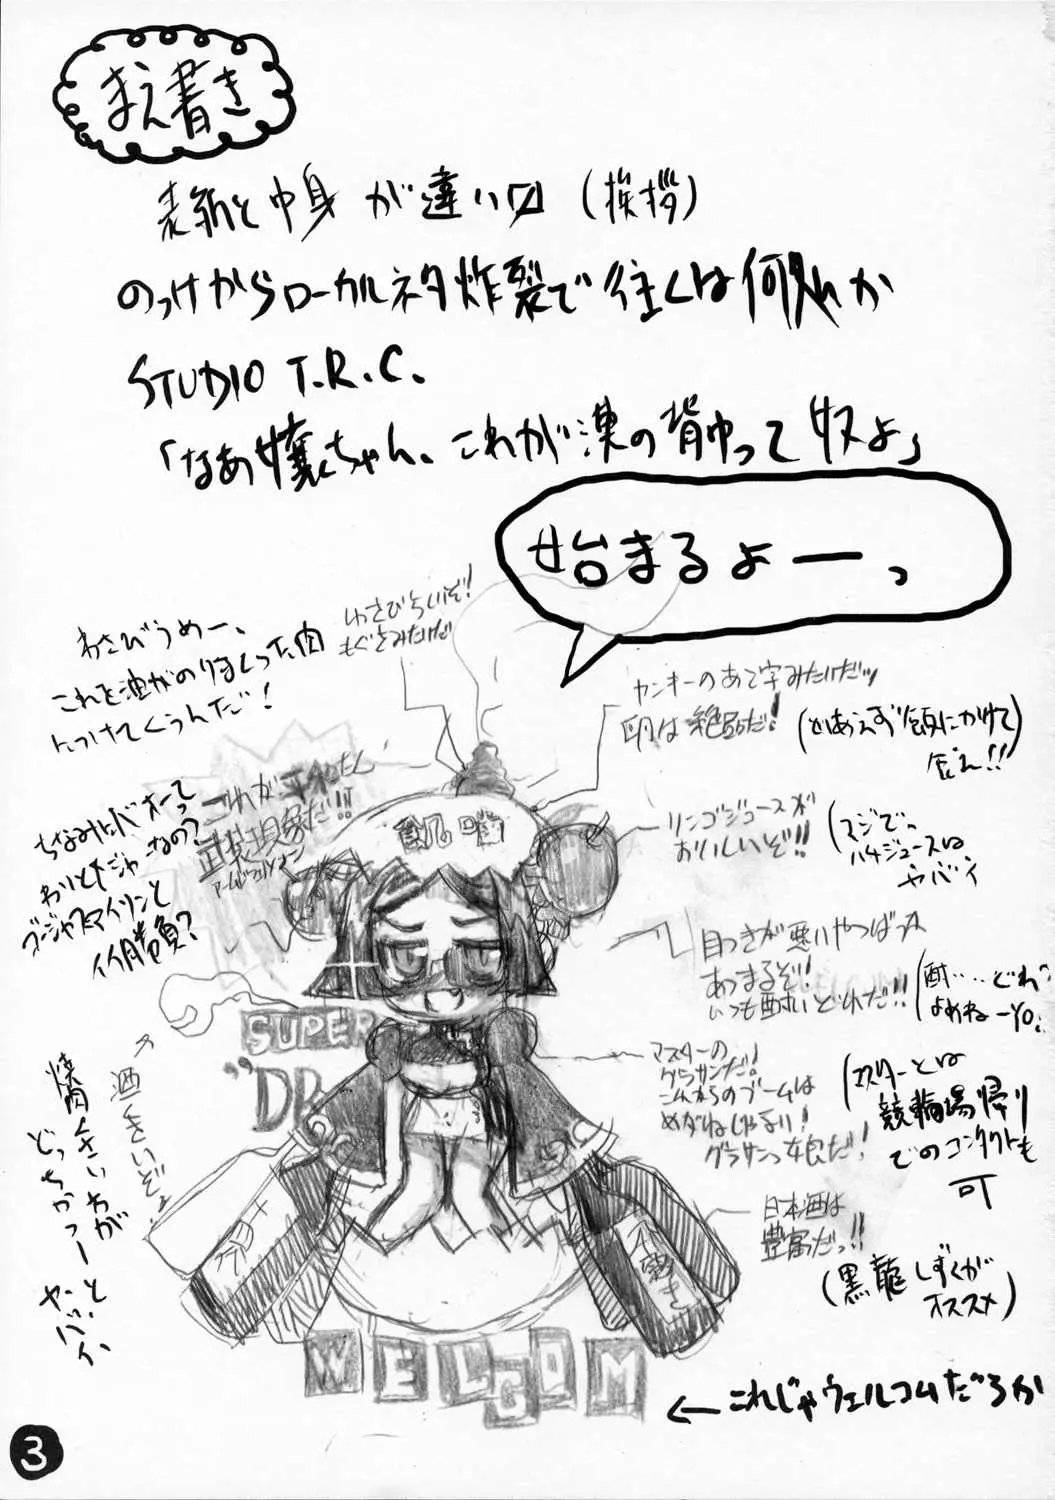 まえ書き
表紙と中身が違い〼(挨拶)
のっけからローカルネタ炸裂で往くは何処か
STUDIO T.R.C.
「なあ嬢ちゃん、これが漢の背中って奴よ」
始まるよーっ
わさびうめー、
これを油がのりまくった肉
につけてくうんだ!
わさびうまいぞ!
もぐさみたいだ
ヤンキーのあて字みたいだッ
卵は絶品だ!
(とりあえず飯にかけて
食え!!)
これが平和な
武装現象だ!!
ちなみにバオーって
わりとメジャーなの?
ブージャムアイリンと
イイ勝負?
リンゴジュースが
おいしいぞ!!
(マジで。
ハチジュースは
ヤバイ)
目つきが悪いやつばっか
あつまるぞ!
いつも酔いどれだ!!
(酔……どれ
よめねーYO.)
マスターの
グラサンだ!
これからのブームは
めがねじゃない!
グラサンっ娘だ!
(マスターとは
競輪場帰り
でのコンタクトも
可)
日本酒は
豊富だっ!!
(黒龍しずくが
オススメ)
酒くさいぞ
焼肉くさいわが
どっちかっつーと
ヤバイ
SUPER
"DR
WELCOM
←これじゃウェルコムだろが
3